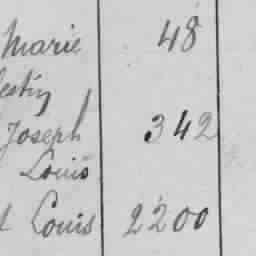 Marie 48
Joseph 342
Louis
Louis 2200